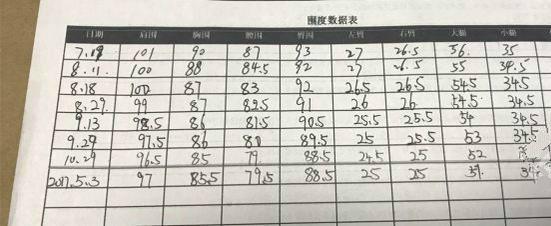 围度数据表
日期 肩围 胸围 腰围 臀围 左臂 右臂 大腿 小腿
101 90 87 93 27 26.5 56. 35
8.11 100 88 84.5 92 27 26.5 55 34.5
8.18 100 87 83 92 26.5 26.5 54.5 34.5
8.29 99 87 82.5 91 26 26 54.5 34.5
9.13 98.5 86 81.5 90.5 25.5 25.5 54 34.5
9.29 97.5 86 80 89.5 25 25.5 53 34.5
10.29 96.5 85 79 88.5 24.5 25 52
2017.5.3 97 85.5 79.5 88.5 25 25